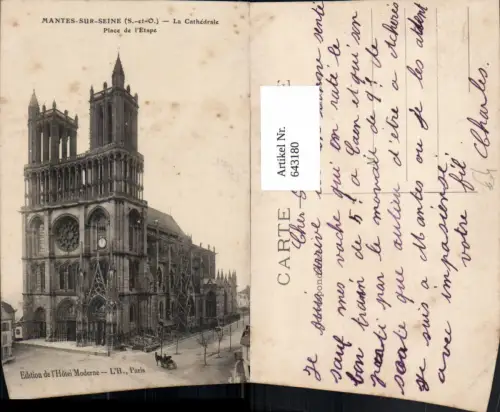 MANTES-SUR-SEINE (S.-et-O.) — La Cathédrale
Place de l'Etape
Edition de l'Hôtel Moderne — L'H., Paris
CARTE
Artikel Nr.
643180
Cher
je suis arrivé bonne santé
sauf mes vache qui on raté le
bon train de 5h a Caen et qui on
parti par le de 9h de
sorte que aulieu d'etre a
je suis a Mantes ou je les attent
avec impasiense.
votre fil
Charles.